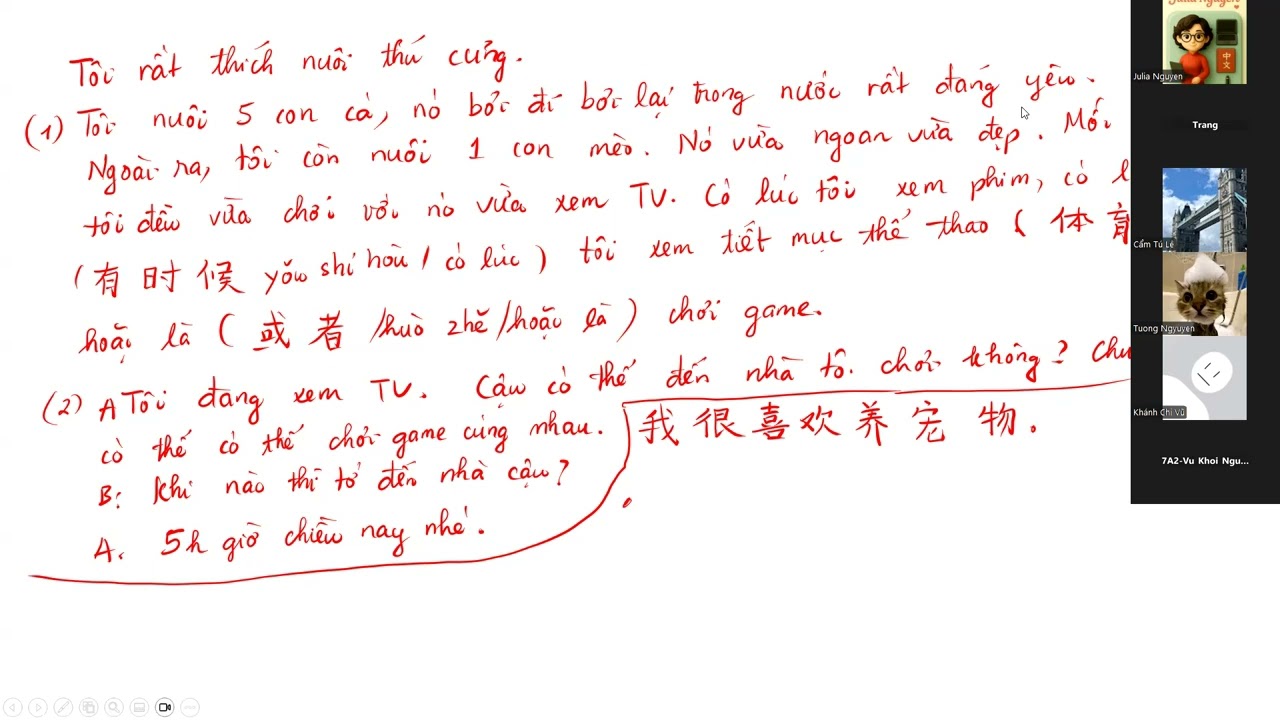 Tôi rất thích nuôi thú cưng.
(1) Tôi nuôi 5 con cá, nó bơi đi bơi lại trong nước rất đáng yêu.
Ngoài ra, tôi còn nuôi 1 con mèo. Nó vừa ngoan vừa đẹp. Mỗi
tôi đều vừa chơi với nó vừa xem TV. Có lúc tôi xem phim, có l
(有时候 yǒu shí hòu / có lúc) tôi xem tiết mục thể thao (体育
hoặc là (或者 /huò zhě/hoặc là) chơi game.
(2) A Tôi đang xem TV. Cậu có thể đến nhà tô. chơi không? Chú
có thể có thể chơi game cùng nhau.
B: Khi nào thì tớ đến nhà cậu?
A. 5h giờ chiều nay nhé.
我很喜欢养宠物.
Julia Nguyen
Julia Nguyen
中文
Trang
Cẩm Tú Lê
Tuong Ngyuyen
Khánh Chi Vũ
7A2-Vu Khoi Ngu...